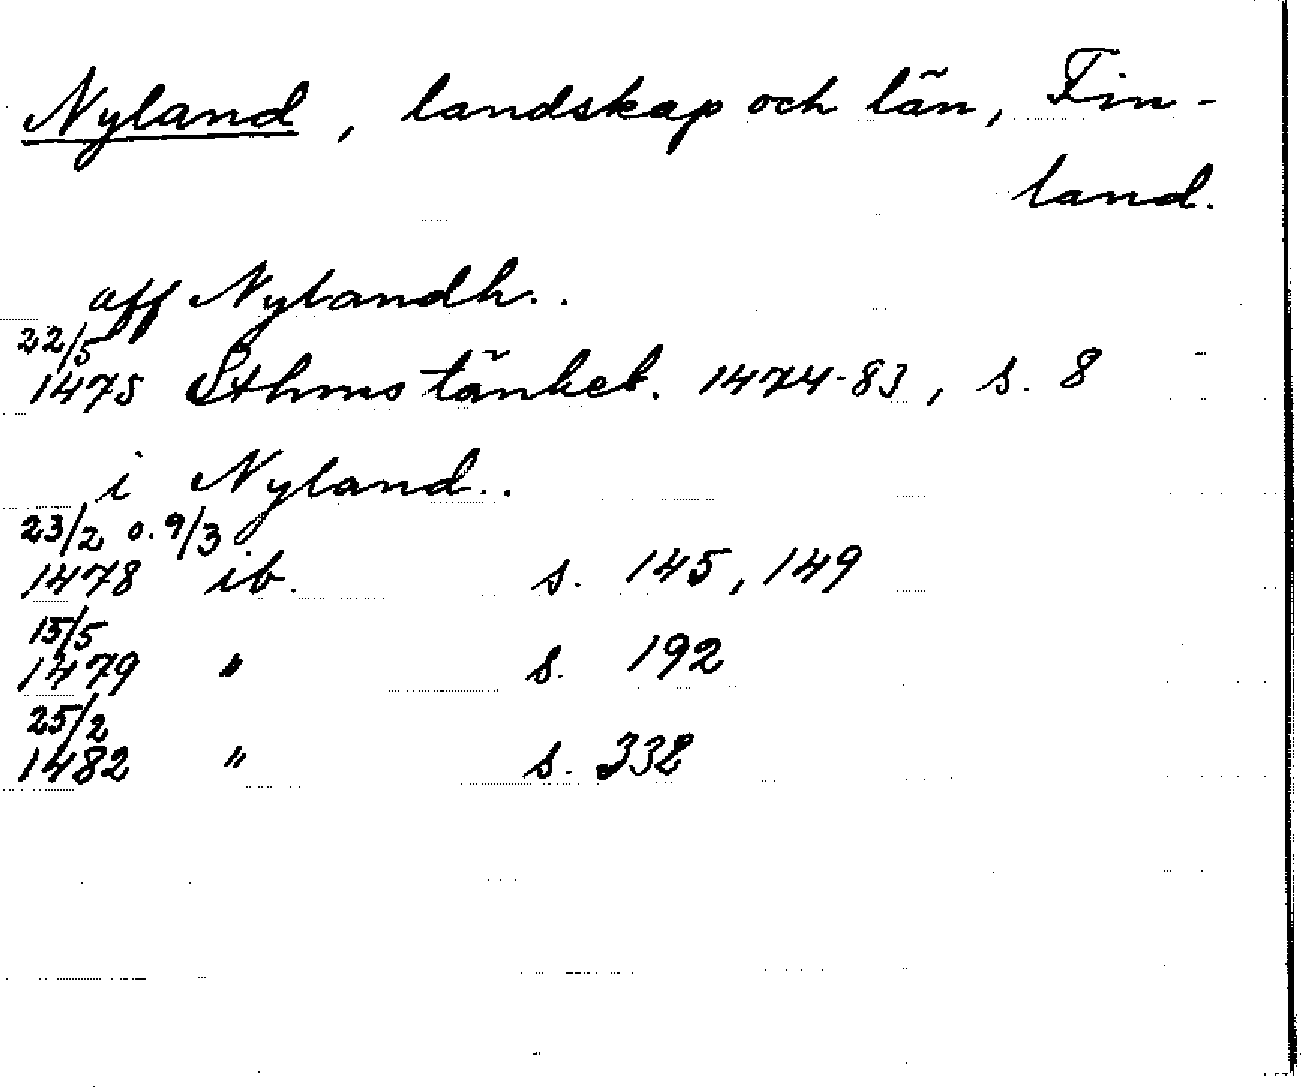 Nyland, landskap och län, Fin-
land.
aff Nylandh..
22/5
1475 Sthms tänkeb. 1474-83, s. 8
i Nyland..
23/2 o. 9/3
1478 ib. s. 145, 149
15/5
1479 " s. 192
25/2
1482 " s. 332